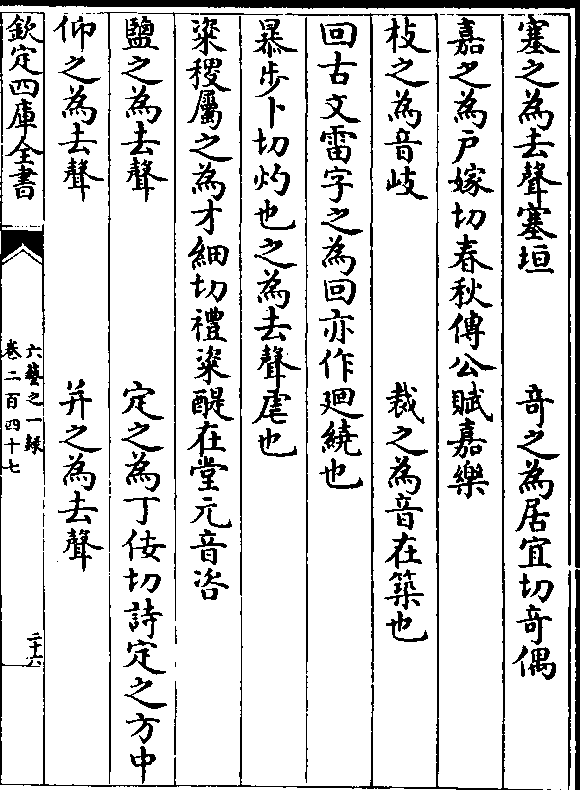 塞之為去聲塞垣　奇之為居宜切奇偶
嘉之為戶嫁切春秋傳公賦嘉樂
枝之為音歧　裁之為音在築也
回古文雷字之為回亦作迴繞也
暴步卜切灼也之為去聲虐也
粢稷屬之為才細切禮粢醍在堂元音咨
鹽之為去聲　定之為丁佞切詩定之方中
仰之為去聲　并之為去聲
欽定四庫全書　六藝之一錄卷二百四十七　二十六